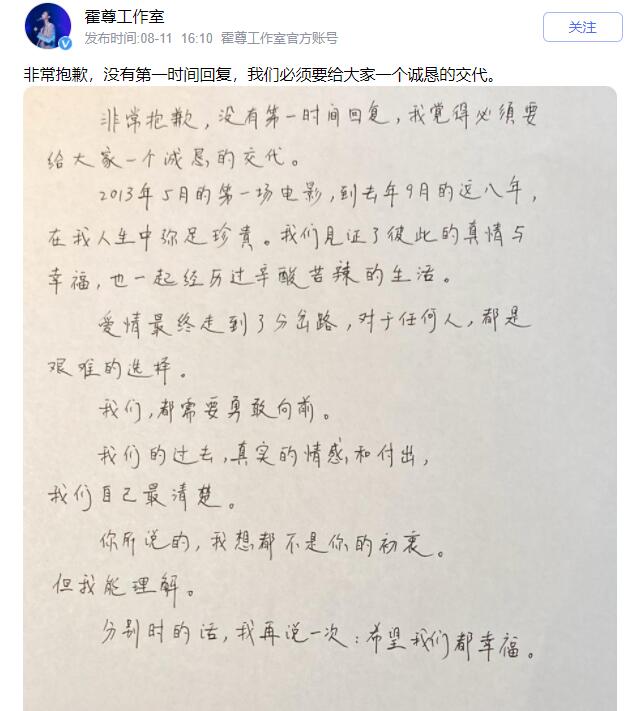 霍尊工作室
发布时间:08-11 16:10 霍尊工作室官方账号
关注
非常抱歉，没有第一时间回复，我们必须要给大家一个诚恳的交代。
非常抱歉，没有第一时间回复，我觉得必须要
给大家一个诚恳的交代。
2013年5月的第一场电影，到去年9月的这八年，
在我人生中弥足珍贵。我们见证了彼此的真情与
幸福，也一起经历过辛酸苦辣的生活。
爱情最终走到了分岔路，对于任何人，都是
艰难的选择。
我们，都需要勇敢向前。
我们的过去，真实的情感和付出，
我们自己最清楚。
你所说的，我想都不是你的初衷。
但我能理解。
分别时的话，我再说一次：希望我们都幸福。